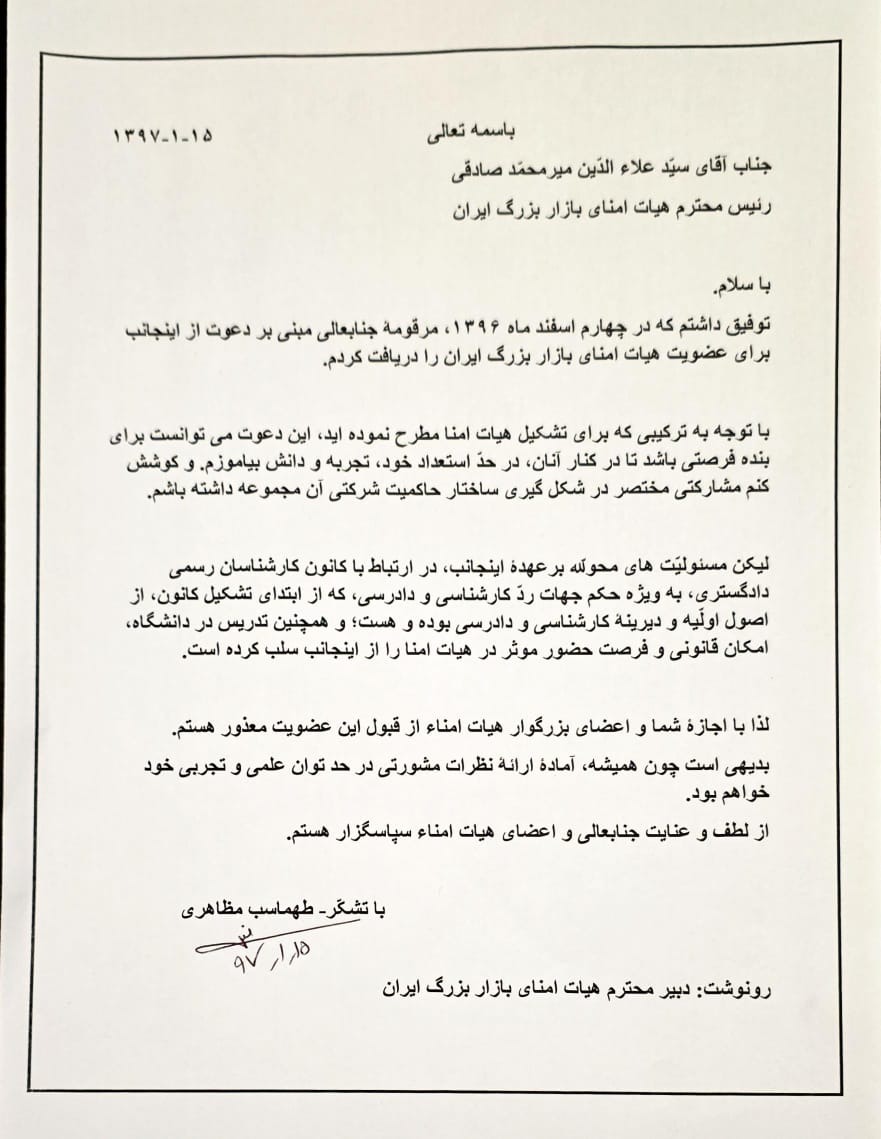 باسمه تعالی
۱۳۹۷-۱-۱۵
جناب آقای سیّد علاء الدّین میرمحمّد صادقی
رئیس محترم هیات امنای بازار بزرگ ایران
با سلام.
توفیق داشتم که در چهارم اسفند ماه ۱۳۹۶، مرقومۀ جنابعالی مبنی بر دعوت از اینجانب
برای عضویت هیات امنای بازار بزرگ ایران را دریافت کردم.
با توجه به ترکیبی که برای تشکیل هیات امنا مطرح نموده اید، این دعوت می توانست برای
بنده فرصتی باشد تا در کنار آنان، در حدّ استعداد خود، تجربه و دانش بیاموزم. و کوشش
کنم مشارکتی مختصر در شکل گیری ساختار حاکمیت شرکتی آن مجموعه داشته باشم.
لیکن مسئولیّت های محولّه برعهدۀ اینجانب، در ارتباط با کانون کارشناسان رسمی
دادگستری، به ویژه حکم جهات ردّ کارشناسی و دادرسی، که از ابتدای تشکیل کانون، از
اصول اولّیه و دیرینۀ کارشناسی و دادرسی بوده و هست؛ و همچنین تدریس در دانشگاه،
امکان قانونی و فرصت حضور موثر در هیات امنا را از اینجانب سلب کرده است.
لذا با اجازۀ شما و اعضای بزرگوار هیات امناء از قبول این عضویت معذور هستم.
بدیهی است چون همیشه، آمادۀ ارائۀ نظرات مشورتی در حد توان علمی و تجربی خود
خواهم بود.
از لطف و عنایت جنابعالی و اعضای هیات امناء سپاسگزار هستم.
با تشکّر- طهماسب مظاهری
۹۷/۱/۱۵
رونوشت: دبیر محترم هیات امنای بازار بزرگ ایران